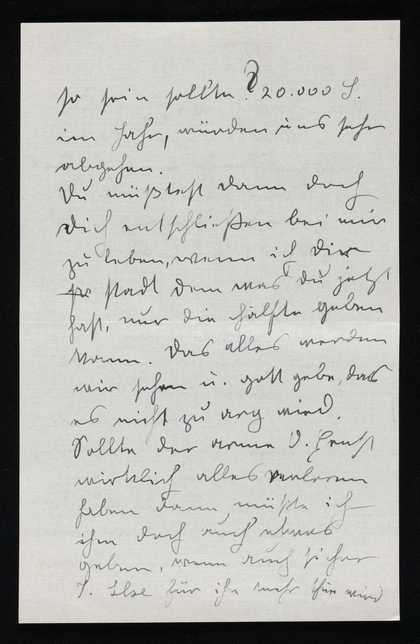 so sein sollte? 20.000 S.
im Jahr, würden uns sehr
abgehen.
Du müßtest dann doch
dich entschließen bei mir
zu leben, wenn ich dir
statt dem was du jetzt
hast, nur die Hälfte geben
kann. Das alles werden
wir sehen u. gott gebe, daß
es nicht zu arg wird.
Sollte der arme O. Ernst
wirklich alles verloren
haben dann müßte ich
ihm doch auch etwas
geben, wenn auch sicher
T. Else für ihn mehr thun wird